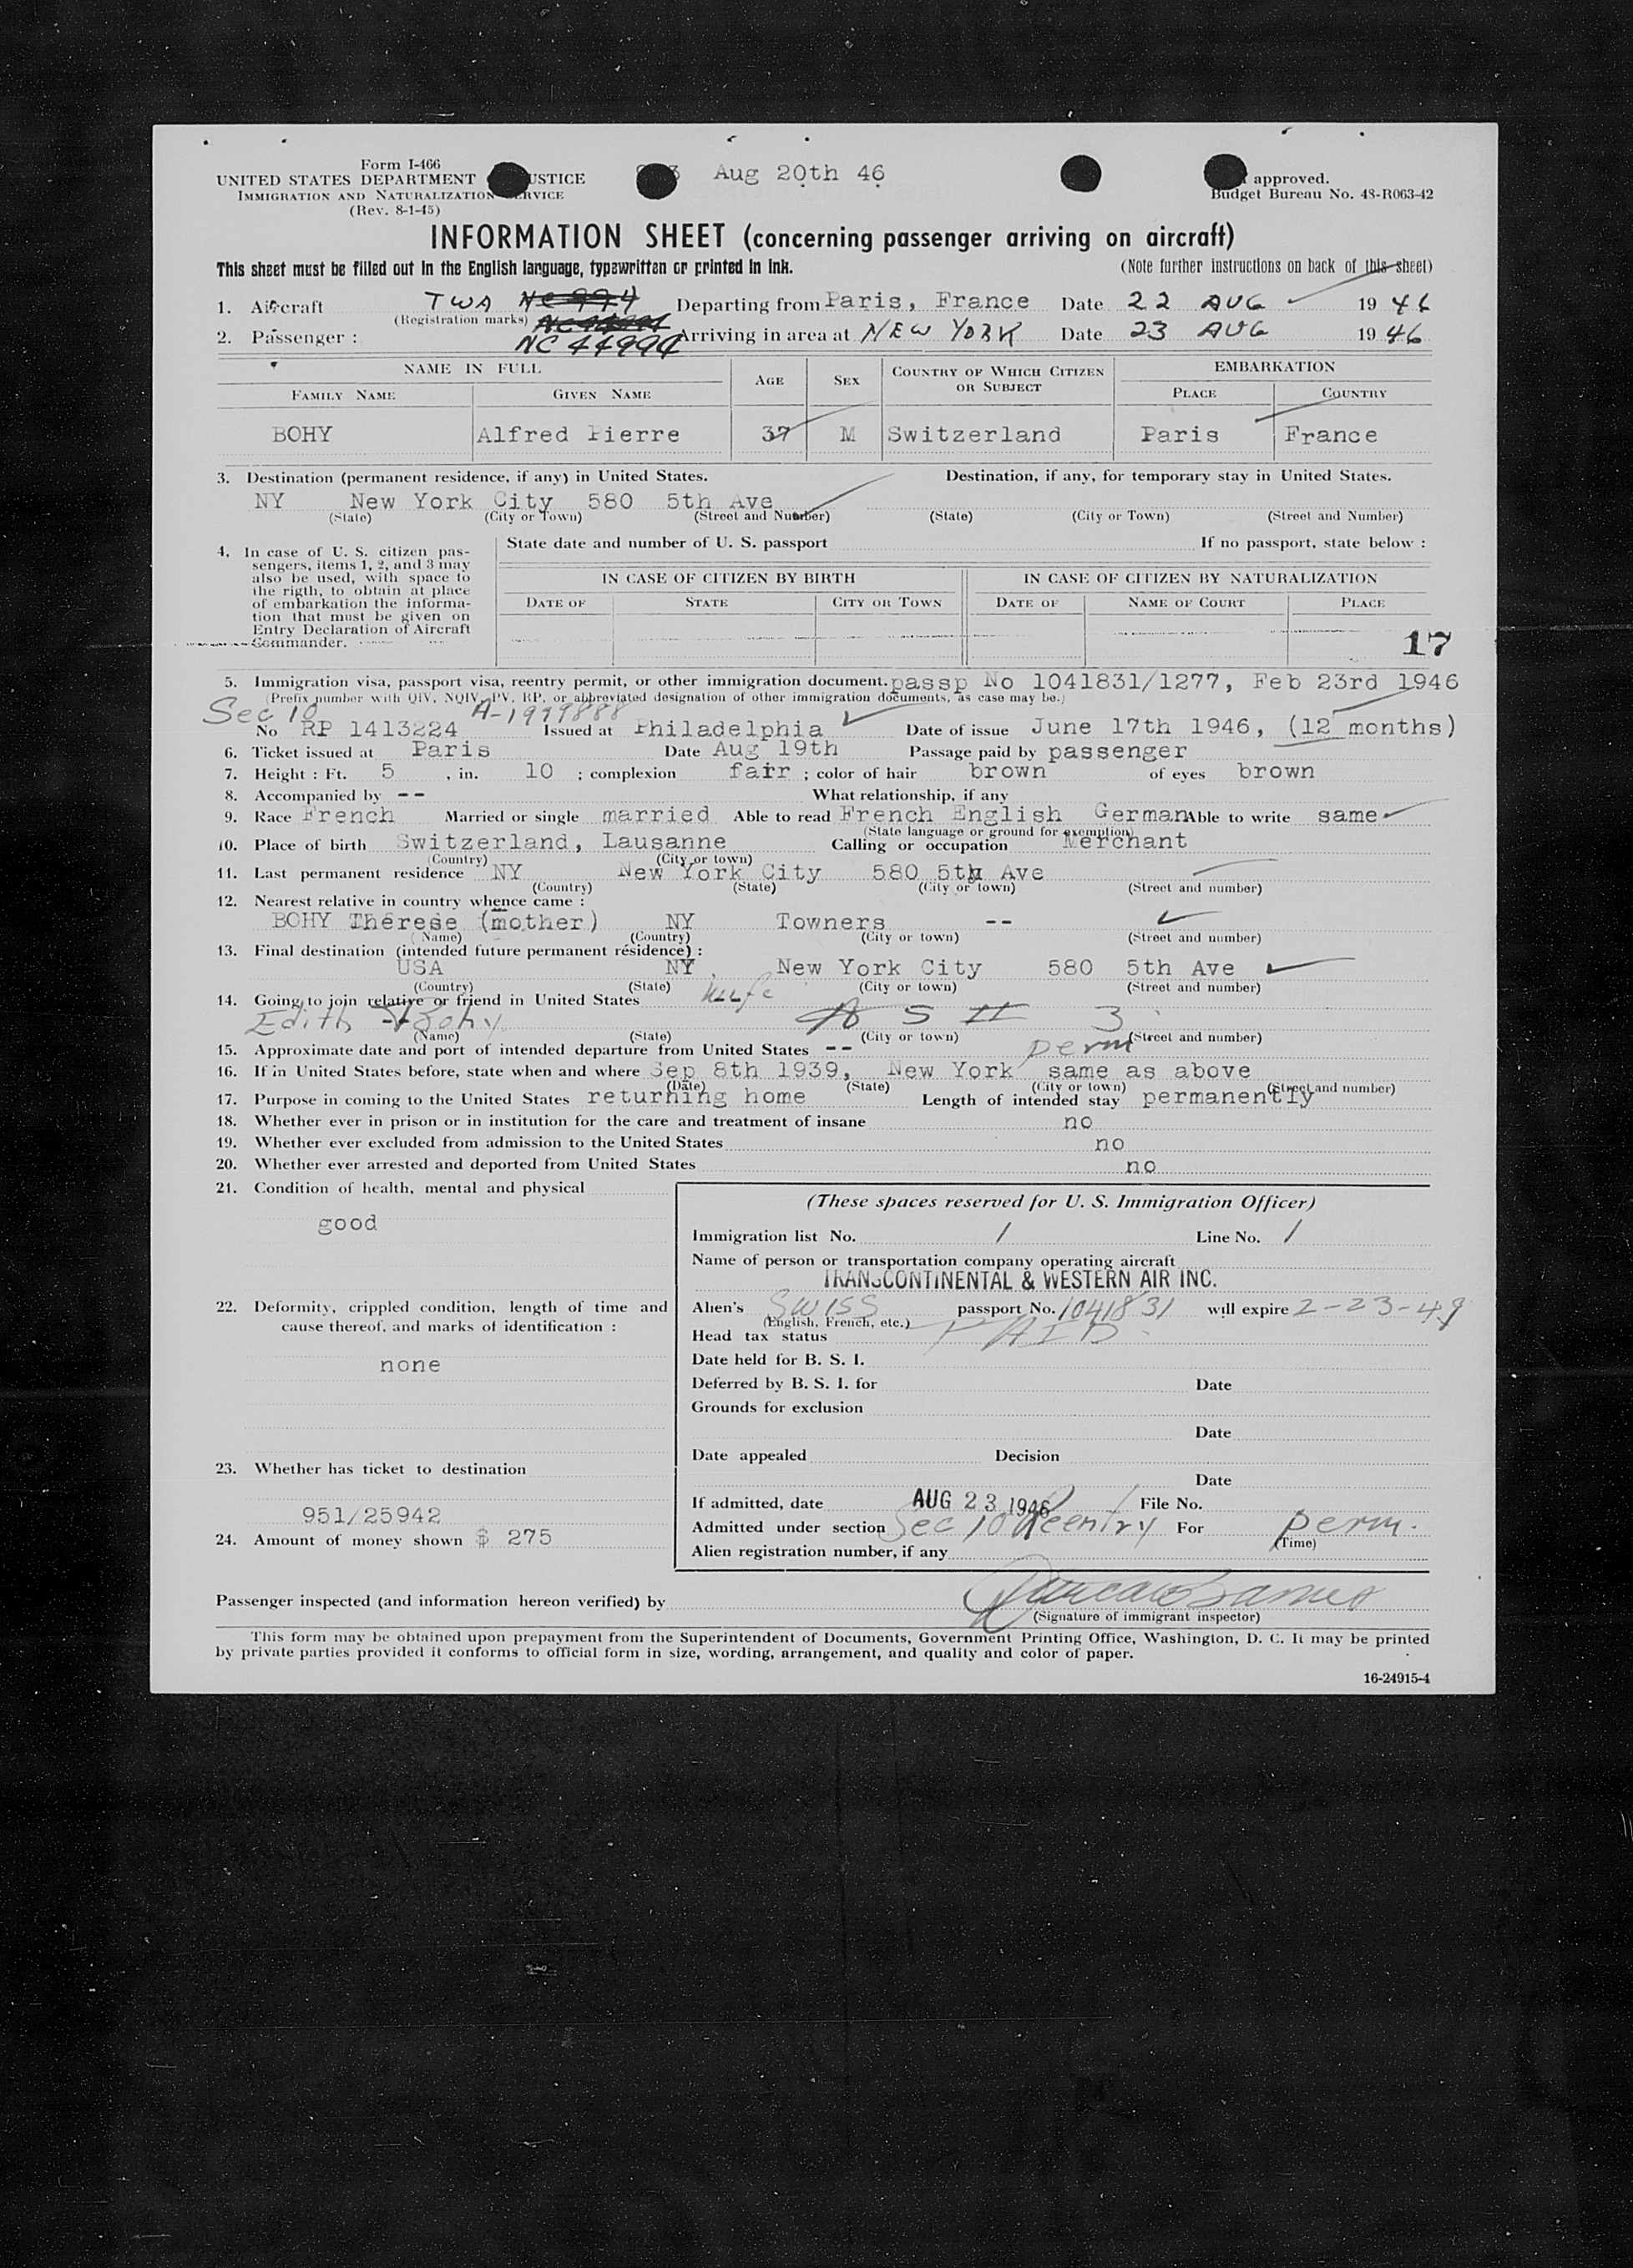 Form I-466
UNITED STATES DEPARTMENT USTICE
IMMIGRATION AND NATURALIZATION ERVICE
(Rev. 8-1-45)
3 Aug 20th 46
approved.
Budget Bureau No. 43-R063-42
INFORMATION SHEET (concerning passenger arriving on aircraft)
This sheet must be filled out in the English language, typewritten or printed in ink. (Note further instructions on back of this sheet)
1. Aircraft TWA Departing from Paris, France Date 22 AUG 1946
(Registration marks)
2. Passenger : NC 44994 Arriving in area at NEW YORK Date 23 AUG 1946
NAME IN FULL AGE SEX COUNTRY OF WHICH CITIZEN OR SUBJECT EMBARKATION
FAMILY NAME GIVEN NAME PLACE COUNTRY
BOHY Alfred Pierre 37 M Switzerland Paris France
3. Destination (permanent residence, if any) in United States. Destination, if any, for temporary stay in United States.
NY New York City 580 5th Ave
(State) (City or Town) (Street and Number) (State) (City or Town) (Street and Number)
4. In case of U. S. citizen pas-
sengers, items 1, 2, and 3 may
also be used, with space to
the rigth, to obtain at place
of embarkation the informa-
tion that must be given on
Entry Declaration of Aircraft
Commander.
State date and number of U. S. passport If no passport, state below :
IN CASE OF CITIZEN BY BIRTH IN CASE OF CITIZEN BY NATURALIZATION
DATE OF STATE CITY OR TOWN DATE OF NAME OF COURT PLACE
17
5. Immigration visa, passport visa, reentry permit, or other immigration document. passp No 1041831/1277, Feb 23rd 1946
(Prefix number with QIV, NQIV, PV, RP, or abbreviated designation of other immigration documents, as case may be.)
Sec 10 A-1999888
No RP 1413224 Issued at Philadelphia Date of issue June 17th 1946, (12 months)
6. Ticket issued at Paris Date Aug 19th Passage paid by passenger
7. Height : Ft. 5 , in. 10 ; complexion fair ; color of hair brown of eyes brown
8. Accompanied by -- What relationship, if any
9. Race French Married or single married Able to read French English German Able to write same
(State language or ground for exemption)
10. Place of birth Switzerland, Lausanne Calling or occupation Merchant
(Country) (City or town)
11. Last permanent residence NY New York City 580 5th Ave
(Country) (State) (City or town) (Street and number)
12. Nearest relative in country whence came :
BOHY Thérese (mother) NY Towners --
(Name) (Country) (City or town) (Street and number)
13. Final destination (intended future permanent résidence) :
USA NY , New York City 580 5th Ave
(Country) (State) (City or town) (Street and number)
14. Going to join relative or friend in United States wife
Edith Bohy A S # 3
(Name) (State) (City or town) (Street and number)
15. Approximate date and port of intended departure from United States -- perm
16. If in United States before, state when and where Sep 8th 1939, New York same as above
(Date) (State) (City or town) (Street and number)
17. Purpose in coming to the United States returning home Length of intended stay permanently
18. Whether ever in prison or in institution for the care and treatment of insane no
19. Whether ever excluded from admission to the United States no
20. Whether ever arrested and deported from United States no
21. Condition of health, mental and physical
good
22. Deformity, crippled condition, length of time and
cause thereof, and marks of identification :
none
23. Whether has ticket to destination
951/25942
24. Amount of money shown $ 275
(These spaces reserved for U. S. Immigration Officer)
Immigration list No. 1 Line No. 1
Name of person or transportation company operating aircraft
TRANSCONTINENTAL & WESTERN AIR INC.
Alien's SWISS passport No. 1041831 will expire 2-23-49
(English, French, etc.)
Head tax status PAID
Date held for B. S. I.
Deferred by B. S. I. for Date
Grounds for exclusion
Date
Date appealed Decision
Date
If admitted, date AUG 23 1946 File No.
Admitted under section Sec 10 Reentry For perm.
(Time)
Alien registration number, if any
Passenger inspected (and information hereon verified) by
(Signature of immigrant inspector)
This form may be obtained upon prepayment from the Superintendent of Documents, Government Printing Office, Washington, D. C. It may be printed
by private parties provided it conforms to official form in size, wording, arrangement, and quality and color of paper.
16-24915-4